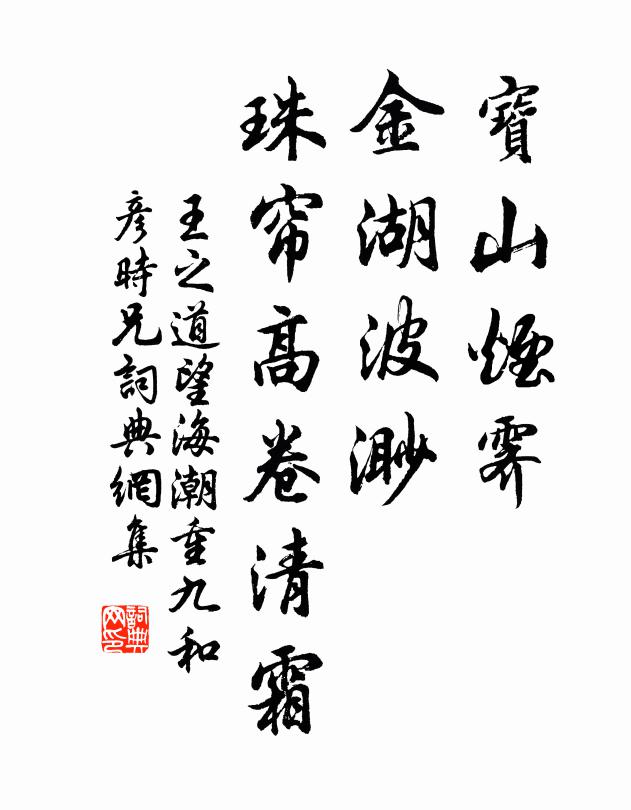 寶山煙霽
金湖波渺
珠帘高卷清霜
王之道望海潮重九和
彥時兄詞典網集
詞典网印